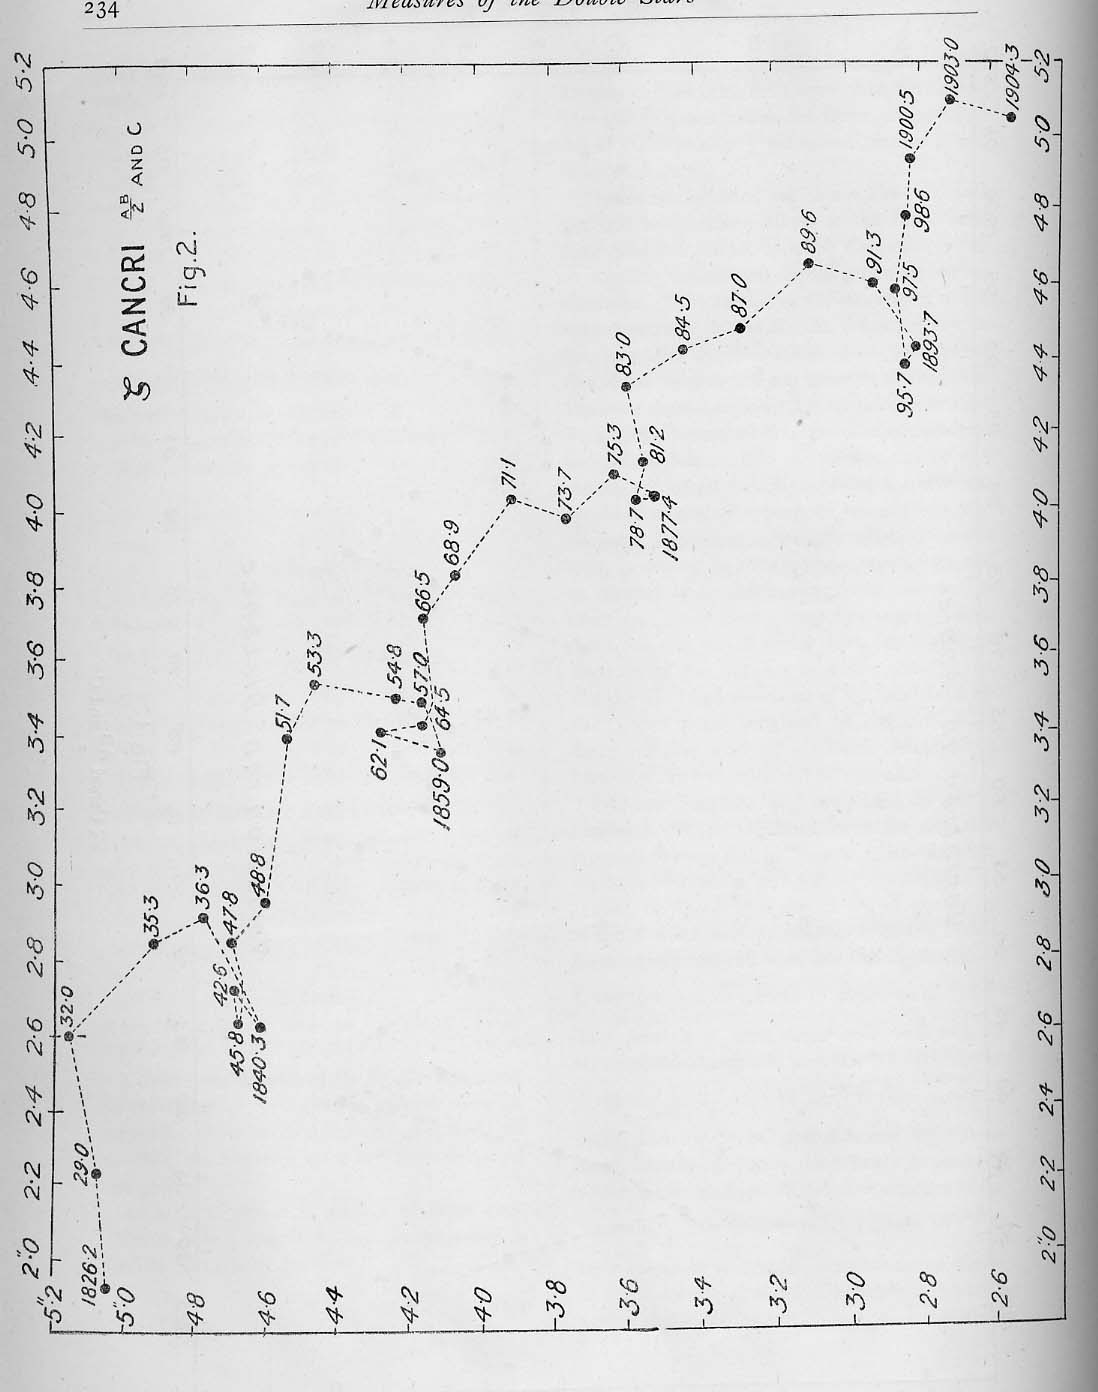 234
Measures of the Double Stars
ζ CANCRI AB/2 AND C
Fig. 2.
2″·0 2·2 2·4 2·6 2·8 3·0 3·2 3·4 3·6 3·8 4·0 4·2 4·4 4·6 4·8 5·0 5·2
-5″·2
-5″·0
-4·8
-4·6
-4·4
-4·2
-4·0
-3·8
-3·6
-3·4
-3·2
-3·0
-2·8
-2·6
1826·2
29·0
32·0
35·3
36·3
1840·3
42·6
45·8
47·8
48·8
51·7
53·3
54·8
57·0
1859·0
62·1
64·5
66·5
68·9
71·1
73·7
75·3
1877·4
78·7
81·2
83·0
84·5
87·0
89·6
91·3
1893·7
95·7
97·5
98·6
1900·5
1903·0
1904·3
2″·0 2·2 2·4 2·6 2·8 3·0 3·2 3·4 3·6 3·8 4·0 4·2 4·4 4·6 4·8 5·0 5·2